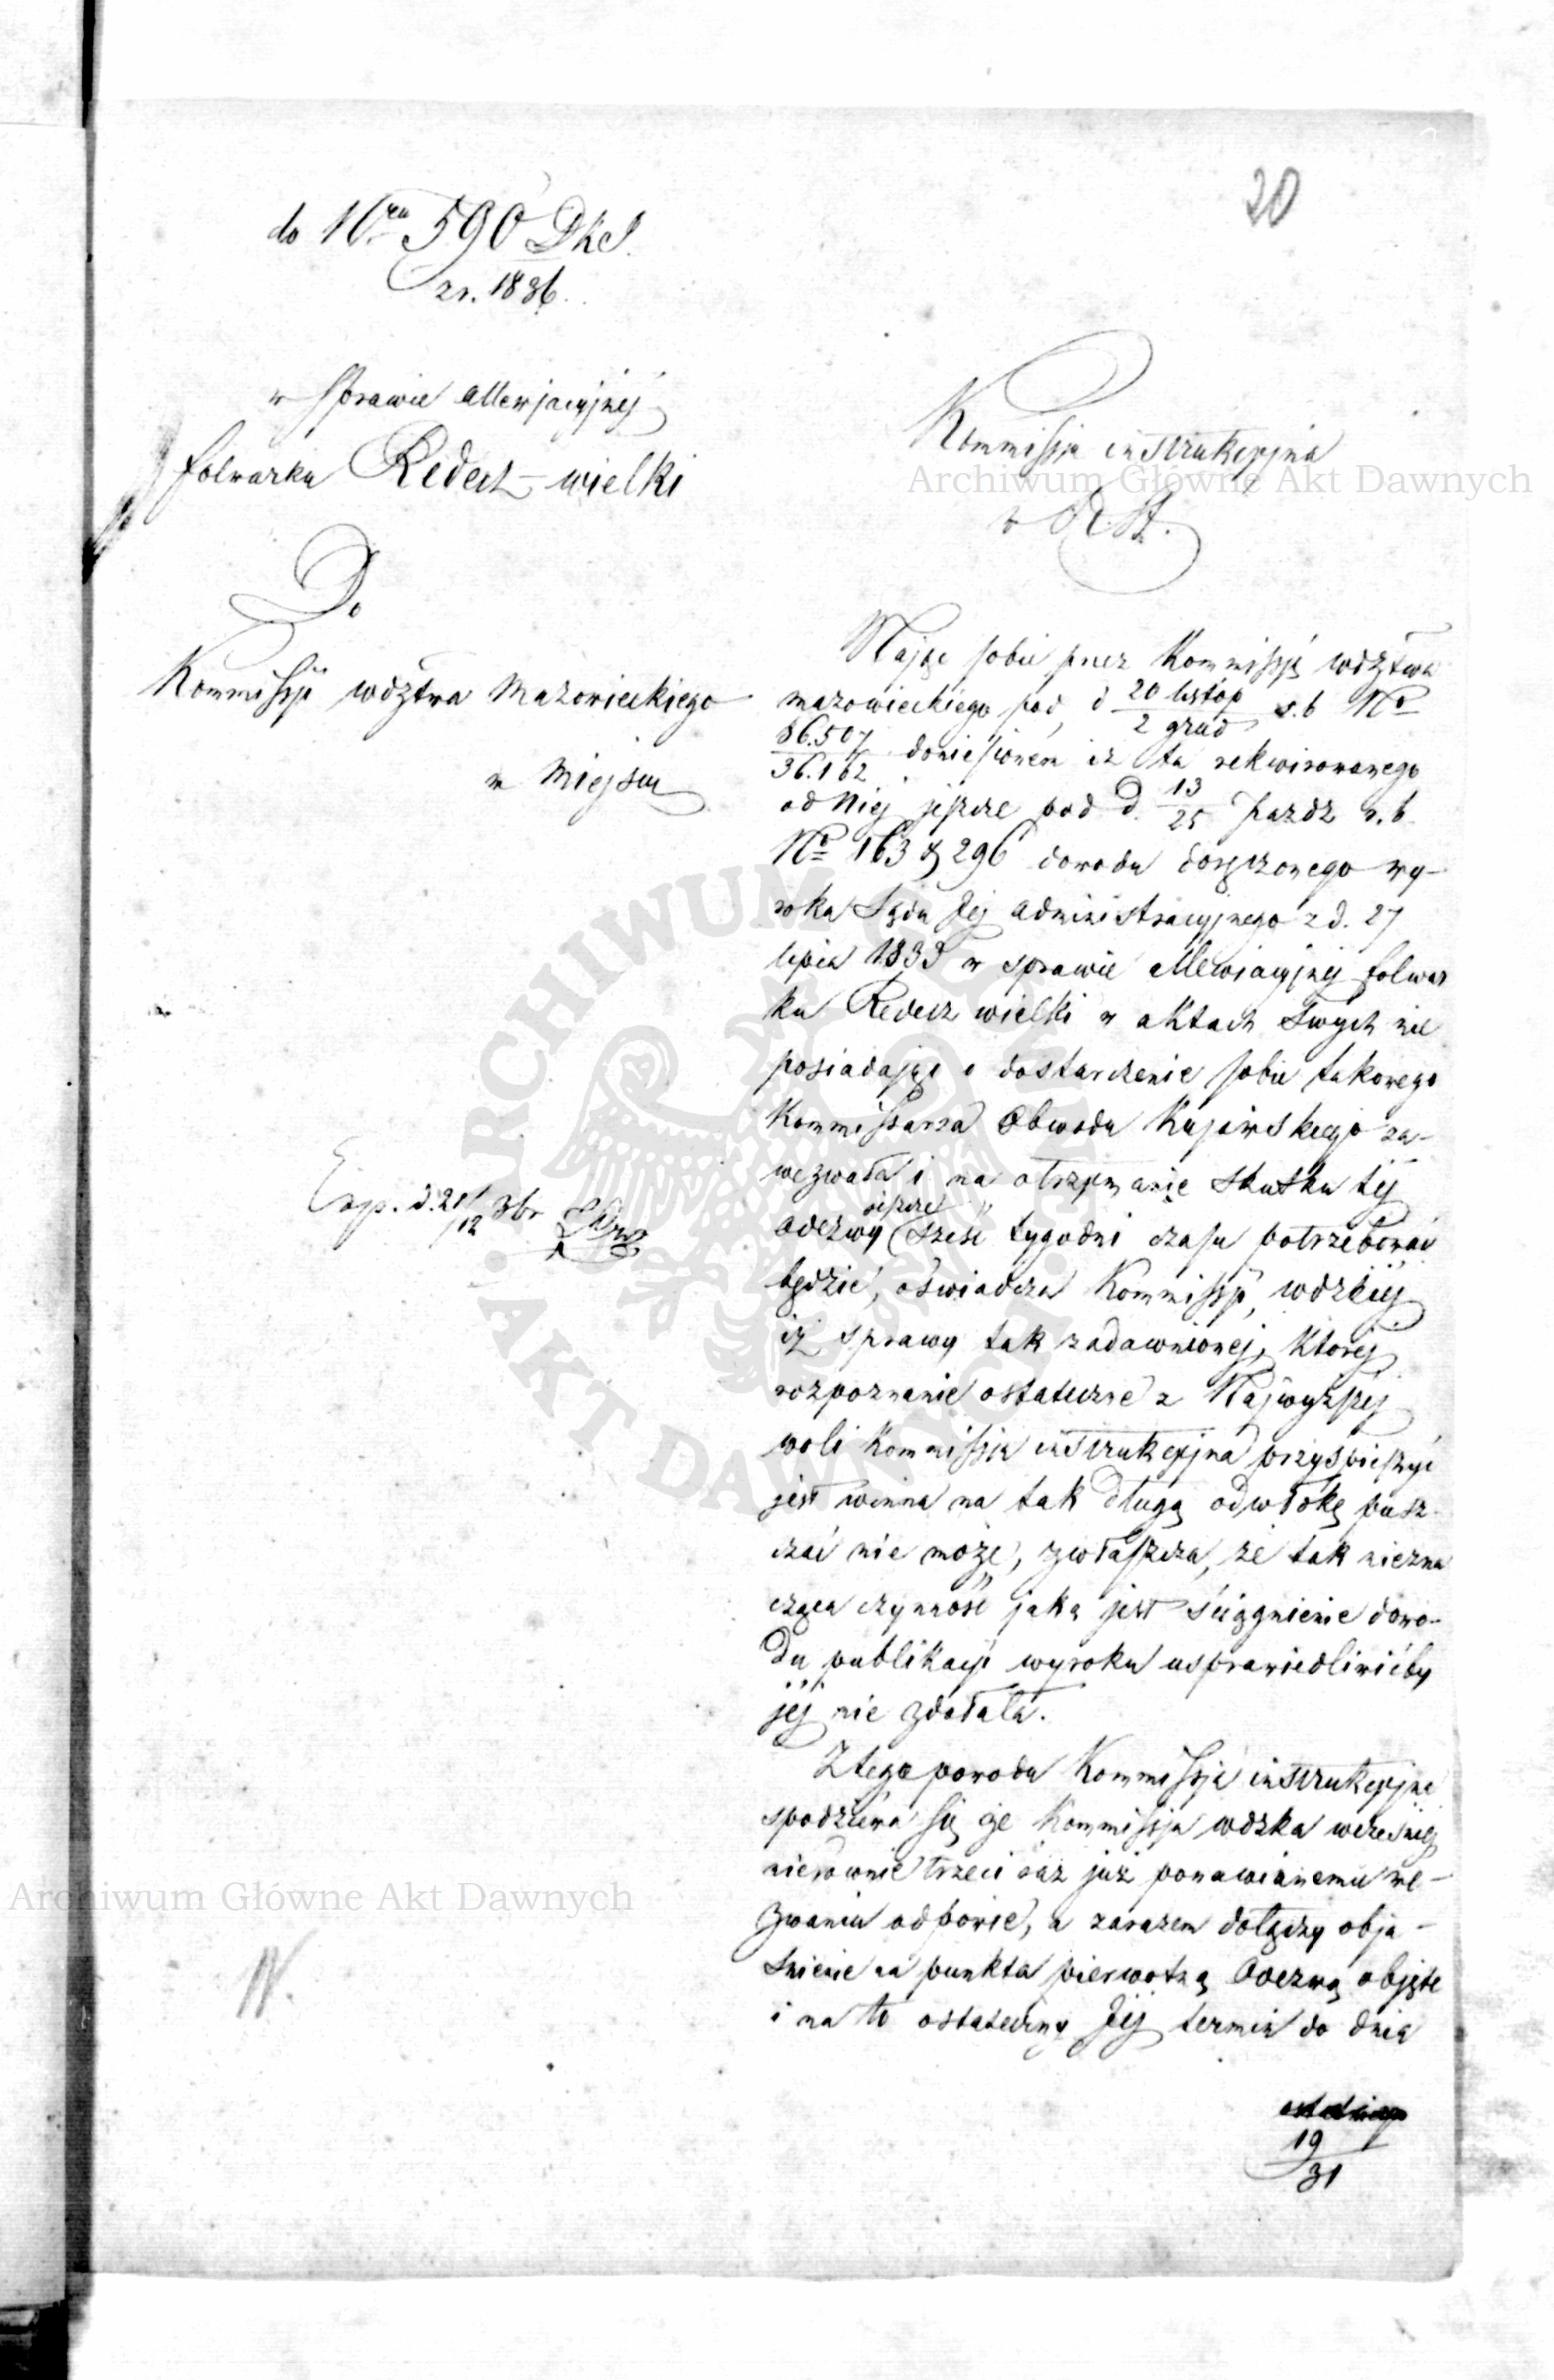 20
do Nru 590 DKS.
z r. 1836.
w sprawie allewjacyjnej
folwarku Redecz-wielki
Do
Kommissji wdztwa Mazowieckiego
w Miejscu
Exp. d. 21/12 Xbr
N.
Kommissja instrukcyjna
w R. St.
Mając sobie przez Kommissją wdztwa
mazowieckiego pod d 20 listop / 2 grud r. b No
86.507 / 36.162 doniesionem iż ta rekwirowanego
od Niej jeszcze pod d. 13/25 Pazdz r. b.
No 163 & 296 dowodu doręczonego wy-
roku Sądu Jej administracyjnego z d. 27
lipca 1833 w sprawie allewiacyjnej folwar
ku Redecz wielki w aktach Swych nie
posiadając o dostarczenie sobie takowego
Kommissarza Obwodu Kujawskiego za-
wezwała i na otrzymanie skutku tej
odezwy jeszcze sześć tygodni czasu potrzebować
będzie, oświadcza Kommissji wdzkiej
iż sprawy tak zadawnionej, której
rozpoznanie ostateczne z Najwyższej
woli Kommissja instrukcyjna przyspieszyć
jest winna na tak długą odwłokę pusz-
czać nie może, zwłaszcza, że tak niezna
cząca czynność jaką jest ściągnienie dowo-
du publikacji wyroku usprawiedliwićby
jej nie zdołała.
Z tego powodu Kommissja instrukcyjna
spodziewa się że Kommissja wdzka wcześniej
nierównie trzeci raz już ponawianemu we-
zwaniu odpowie, a zarazem dołączy obja-
śnienie na punkta pierwotną Odezwą objęte
i na to ostateczny Jej termin do dnia
19/31
Archiwum Główne Akt Dawnych
Archiwum Główne Akt Dawnych
ARCHIWUM GŁÓWNE
AKT DAWNYCH